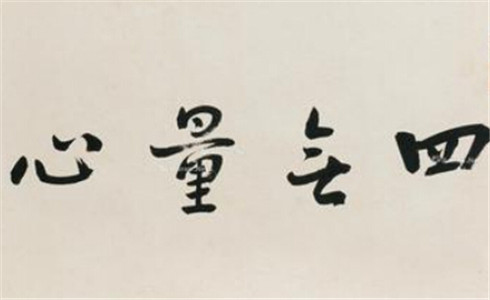 四无量心